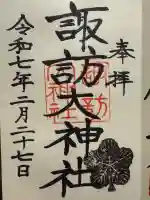 奉拝
諏訪大神社
令和七年二月二十七日